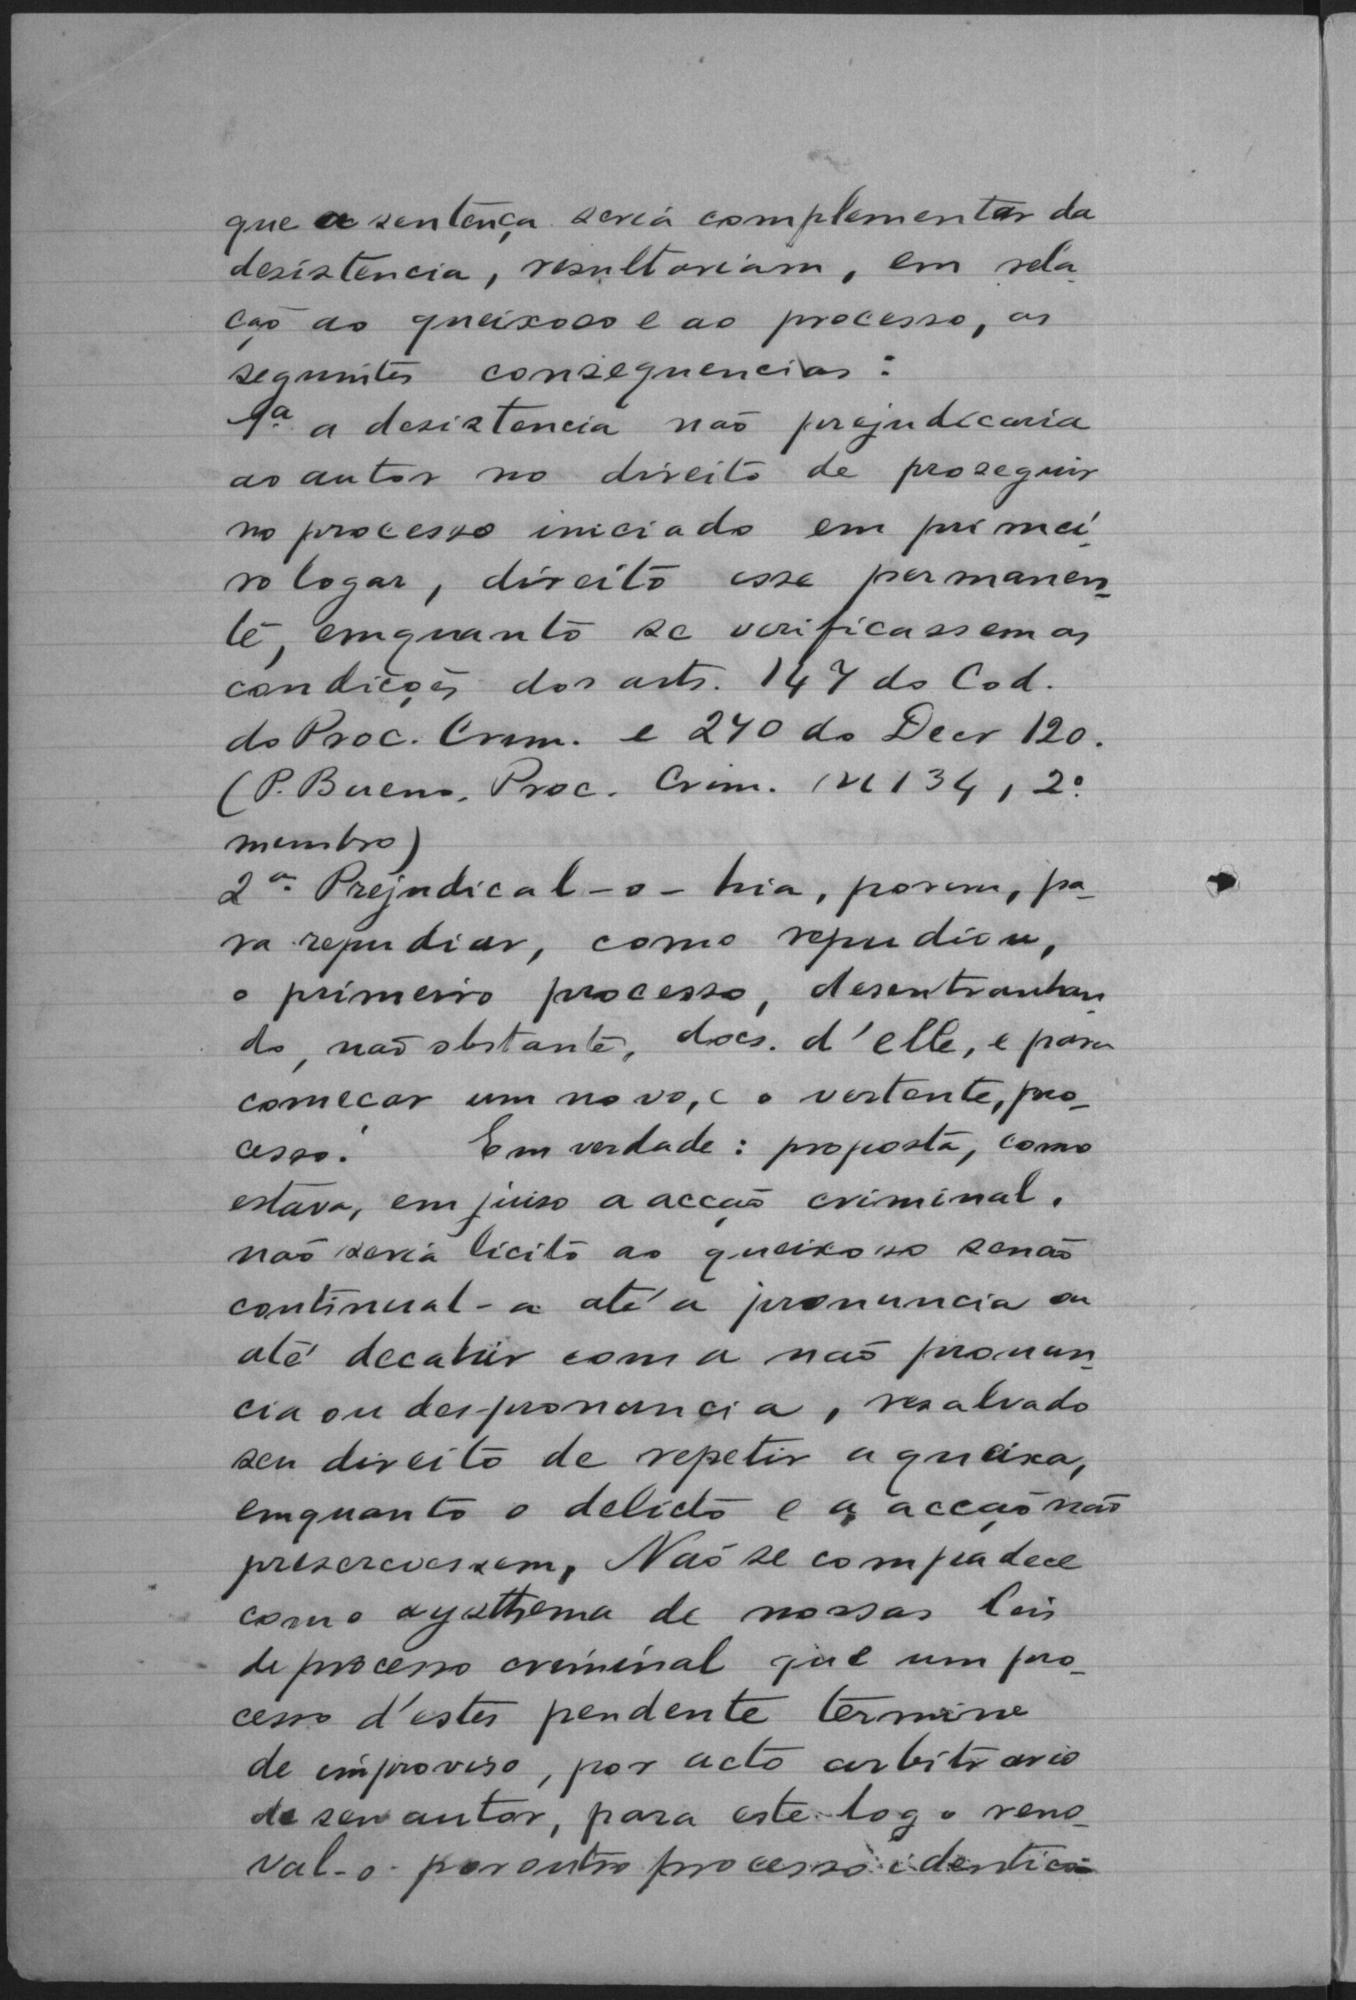 que a sentença seria complementar da
desistencia, resultariam, em rela-
ção ao queixoso e ao processo, as
seguintes consequencias:
1ª a desistencia não prejudicaria
ao autor no direito de proseguir
no processo iniciado em primei-
ro logar, direito esse permanen-
te, emquanto se verificassem as
condições dos arts. 147 do Cod.
do Proc. Crim. e 240 do Decr 120.
(P. Bueno, Proc. Crim. n 134, 2º
membro)
2ª Prejudical-o-hia, porem, pa-
ra repudiar, como repudiou,
o primeiro processo, desentranhan-
do, não obstante, docs. d'elle, e para
começar um novo, e o vertente, pro-
cesso. Em verdade: proposta, como
estava, em juiso a acção criminal,
não seria licito ao queixoso senão
continual-a até a pronuncia ou
até decahir com a não pronun-
cia ou despronuncia, resalvado
seu direito de repetir a queixa,
emquanto o delicto e a acção não
prescrevessem. Não se compadece
com o systhema de nossas leis
de processo criminal que um pro-
cesso d'estes pendente termine
de improviso, por acto arbitrario
de seu autor, para este logo reno-
val-o por outro processo identico